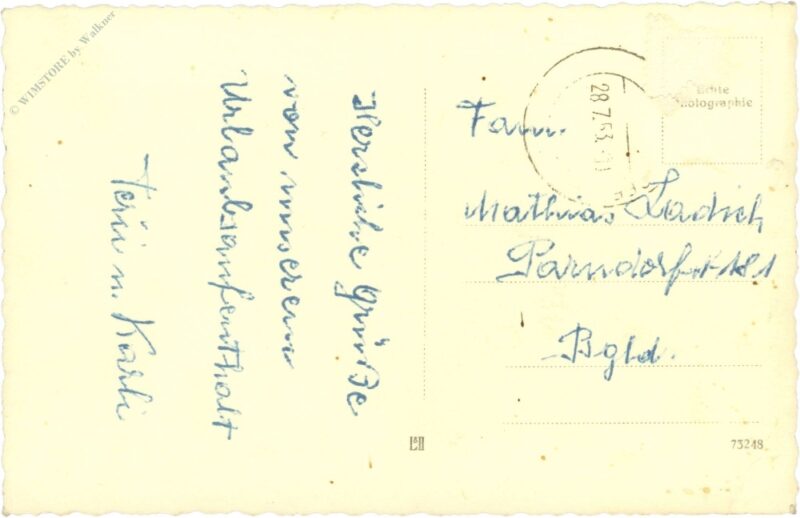 © WIMSTORE by Walkner
Herzliche Grüße
von unserem
Urlaubsaufenthalt
Teri u. Karli
28.7.63
Echte
Photographie
Fam.
Mathias Ladich
Parndorf 181
Bgld.
73248